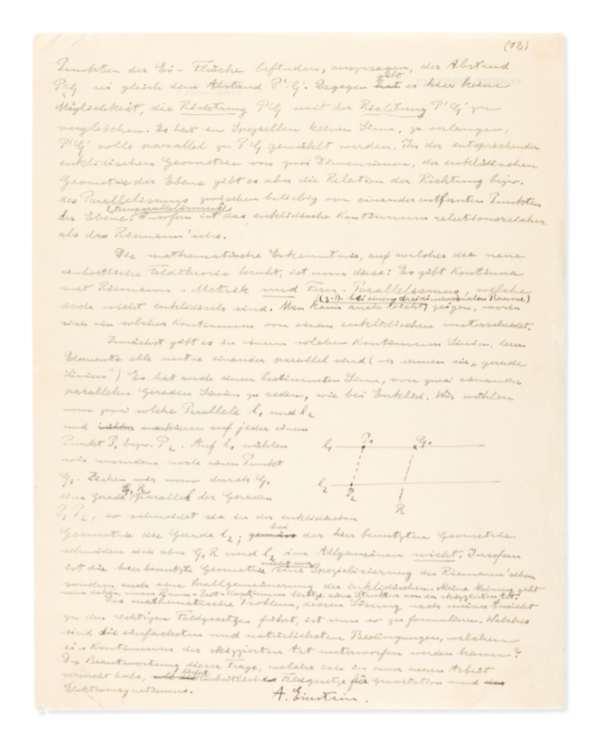 (12)
Punkten der Ei-Fläche befinden, auszusagen, der Abstand
P G sei gleich dem Abstand P' G'. Dagegen gibt es hier keine
Möglichkeit, die Richtung P G mit der Richtung P' G' zu
vergleichen. Es hat im Speziellen keinen Sinn, zu verlangen,
P' G' solle parallel zu P G gewählt werden. In der entsprechenden
euklidischen Geometrie von zwei Dimensionen, der euklidischen
Geometrie der Ebene gibt es aber die Relation der Richtung bezw.
des Parallelismus zwischen beliebig von einander entfernten Punkten
der Ebene. Insofern ist das euklidische Kontinuum relationsreicher
als das Riemann'sche.
Die mathematische Erkenntnis, auf welcher die neue
einheitliche Feldtheorie beruht, ist nun diese: Es gibt Kontinua
mit Riemann-Metrik und Fern-Parallelismus, welche
(z. B. bei einem dreidimensionalen Raume)
doch nicht euklidisch sind. Man kann leicht zeigen, worin
sich ein solches Kontinuum von einem euklidischen unterscheidet.
Zunächst gibt es in einem solchen Kontinuum Linien, deren
Elemente alle unter einander parallel sind (wir nennen sie „gerade
Linien“) Es hat auch einen bestimmten Sinn, von zwei einander
parallelen Geraden Linien zu reden, wie bei Euklid. Wir wählen
nun zwei solche Parallele L₁ und L₂
und markieren auf jeder einen
Punkt P₁ bezw. P₂. Auf L₁ wählen
wir ausserdem noch einen Punkt
G₁. Ziehen wir nun durch G₁
eine Gerade G₁ R parallel der Geraden
P₁ P₂, so schneidet sie in der euklidischen
Geometrie die Gerade L₂; bei der hier benutzten Geometrie
schneiden sich aber G₁ R und L₂ im Allgemeinen nicht. Insofern
ist die hier benutzte Geometrie nicht nur eine Spezialisierung der Riemann'schen
sondern auch eine Verallgemeinerung der euklidischen. Meine Meinung geht
nun dahin, unser Raum-Zeit-Kontinuum besitze eine Struktur von der skizzierten Art.
Das mathematische Problem, dessen Lösung nach meiner Ansicht
zu den richtigen Feldgesetzen führt, ist nun so zu formulieren. Welches
sind die einfachsten und natürlichsten Bedingungen, welchen
ein Kontinuum der skizzierten Art unterworfen werden kann?
Die Beantwortung dieser Frage, welche ich in einer neuen Arbeit
versucht habe, einheitliche Feldgesetze für Gravitation und
Elektromagnetismus.
A. Einstein.
L₁ P₁ G₁
L₂ P₂
R